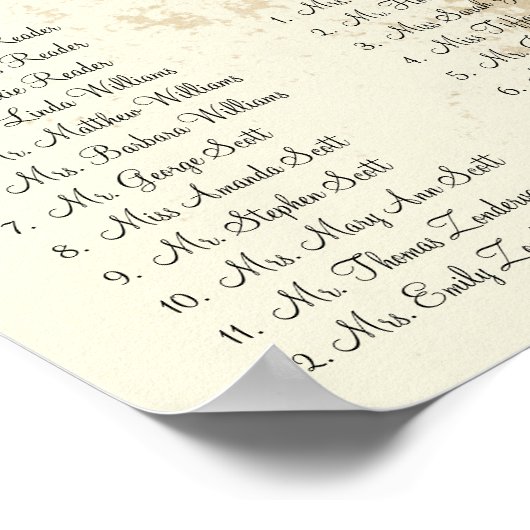 Reader
Reader
Reader
Linda Williams
Mr. Matthew Williams
Mrs. Barbara Williams
7. Mr. George Scott
8. Miss Amanda Scott
9. Mr. Stephen Scott
10. Mrs. Mary Ann Scott
11. Mr. Thomas
2. Mrs. Emily
1.
2. Mr.
3. Miss
4. Miss
5. Mr.
6.